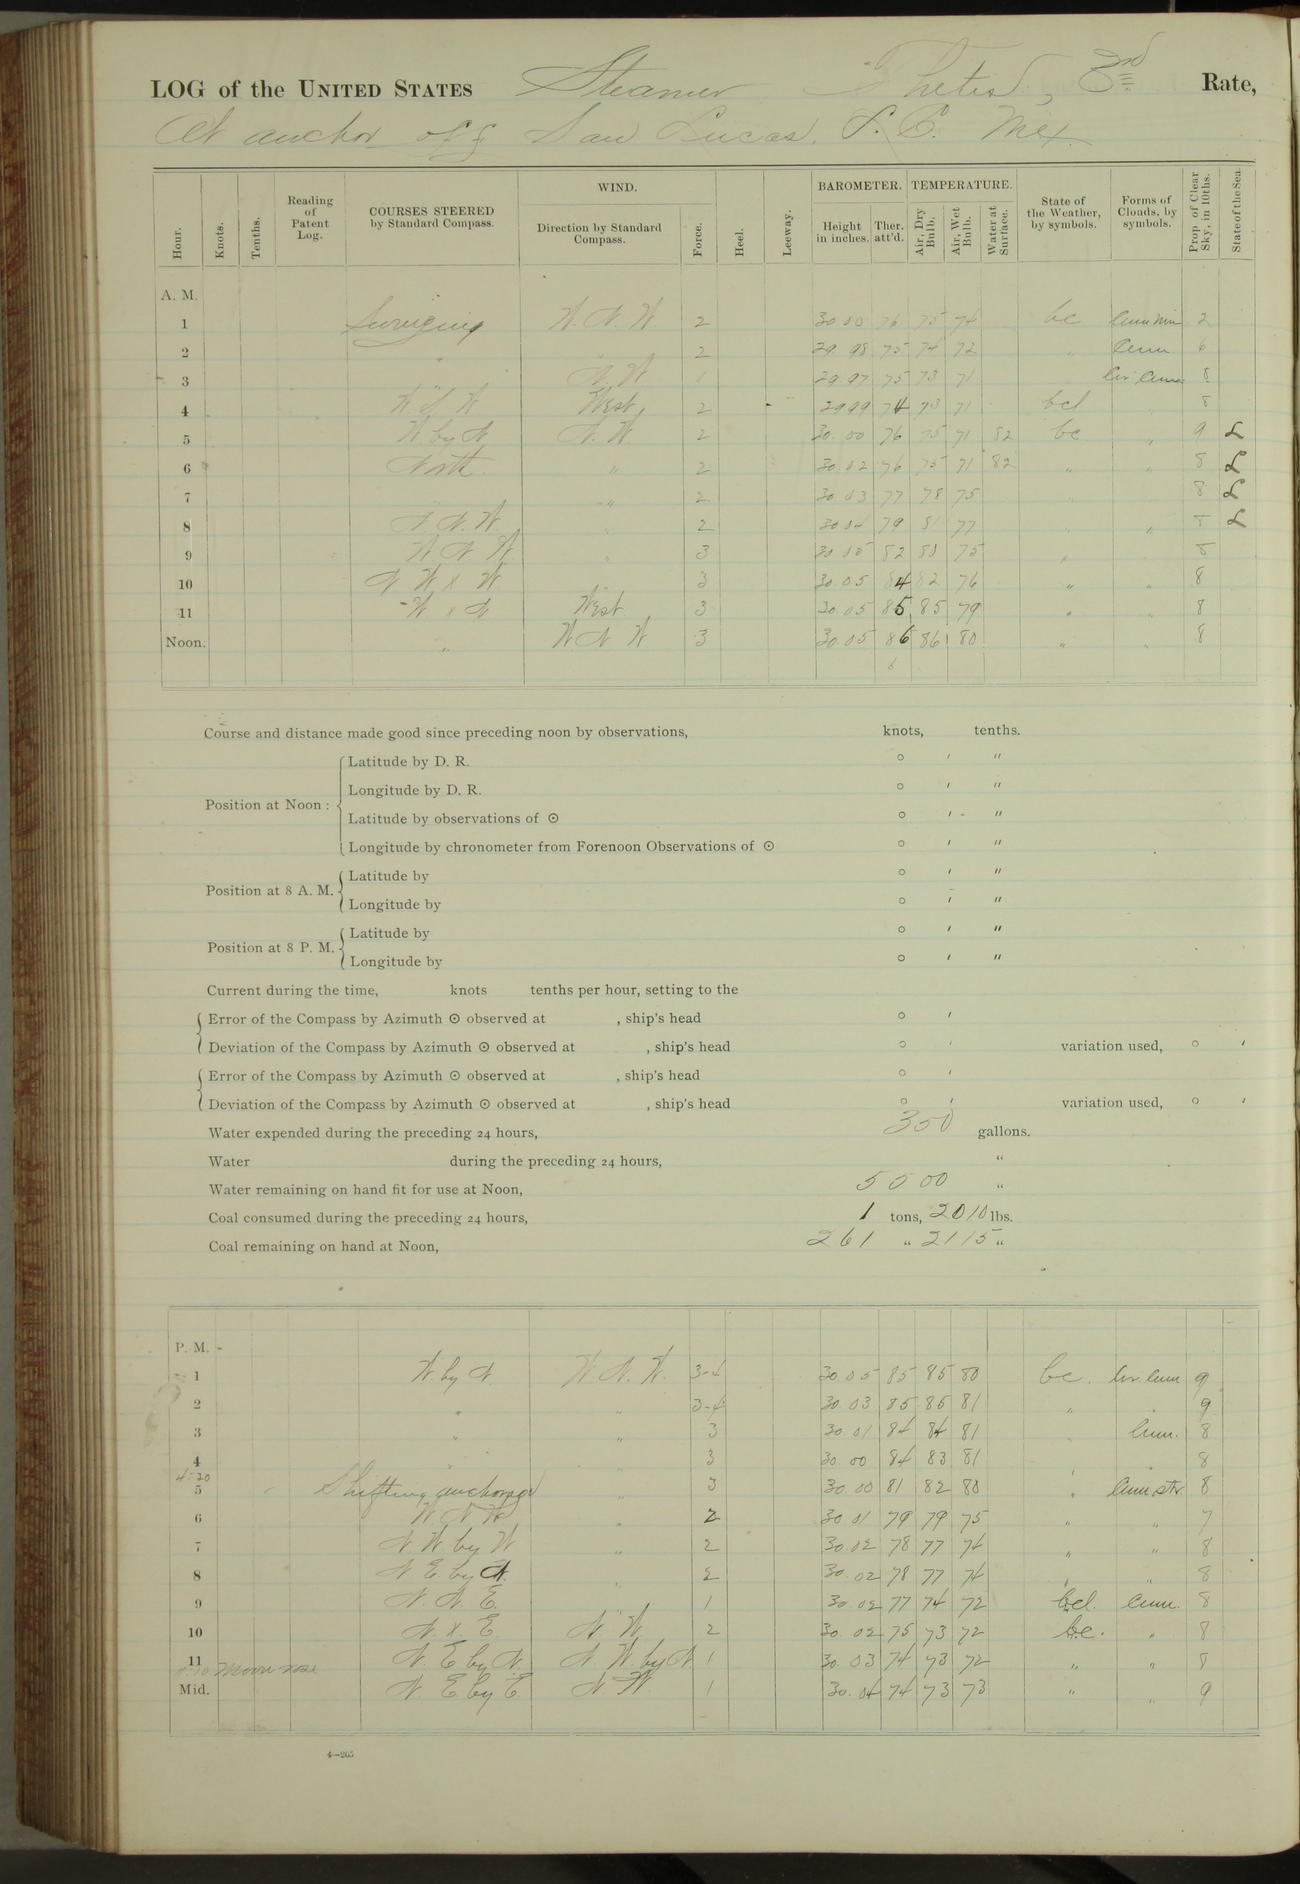 LOG of the UNITED STATES Steamer Thetis, 3rd Rate,
At anchor off San Lucas. L. C. Mex.
Hour. Knots. Tenths. Reading of Patent Log. COURSES STEERED by Standard Compass. WIND. Direction by Standard Compass. Force. Heel. Leeway. BAROMETER. Height in inches. Ther. att'd. TEMPERATURE. Air, Dry Bulb. Air, Wet Bulb. Water at Surface. State of the Weather, by symbols. Forms of Clouds, by symbols. Prop. of Clear Sky, in 10ths. State of the Sea.
A. M.
1 Swinging W. N. W 2 30 00 76 75 74 bc 2
2 " " 2 29 98 75 74 72 " Cum 6
3 N. W 1 29.97 75 73 71 Cir Cum 8
4 West 2 29 99 74 73 71 bcl 8
5 W by N N. W 2 30. 00 76 75 71 82 bc " 9 L
6 North. " 2 30.02 76 75 71 82 " " 8 L
7 " 2 30 03 77 78 75 8 L
8 N. N. W " 2 30 04 79 81 77 " 8 L
9 W N W " 3 30 05 82 80 75 " 8
10 N W x W 3 30.05 84 82 76 " " 8
11 W x N West 3 30.05 85 85 79 " 8
Noon. " W N W 3 30 05 86 86 80 " " 8
Course and distance made good since preceding noon by observations, knots, tenths.
Position at Noon :
Latitude by D. R. ° ′ ″
Longitude by D. R. ° ′ ″
Latitude by observations of ⊙ ° ′ ″
Longitude by chronometer from Forenoon Observations of ⊙ ° ′ ″
Position at 8 A. M.
Latitude by ° ′ ″
Longitude by ° ′ ″
Position at 8 P. M.
Latitude by ° ′ ″
Longitude by ° ′ ″
Current during the time, knots tenths per hour, setting to the
Error of the Compass by Azimuth ⊙ observed at , ship's head ° ′
Deviation of the Compass by Azimuth ⊙ observed at , ship's head ° ′ variation used, ° ′
Error of the Compass by Azimuth ⊙ observed at , ship's head ° ′
Deviation of the Compass by Azimuth ⊙ observed at , ship's head ° ′ variation used, ° ′
Water expended during the preceding 24 hours, 350 gallons.
Water during the preceding 24 hours, "
Water remaining on hand fit for use at Noon, 5000 "
Coal consumed during the preceding 24 hours, 1 tons, 2010 lbs.
Coal remaining on hand at Noon, 261 " 2115 "
P. M.
1 W. by N W. N. W. 3-4 30 05 85 85 80 bc. Cir Cum 9
2 " " 3-4 30. 03 85 85 81 " 9
3 " " 3 30. 01 84 84 81 Cum. 8
4 3 30. 00 84 83 81 8
4-20
5 Shifting anchorage " 3 30. 00 81 82 80 " Cum str 8
6 W N W " 2 30 01 79 79 75 " " 7
7 N W. by W " 2 30.02 78 77 74 " " 8
8 N E by N. " 2 30. 02 78 77 74 " 8
9 N. N. E. 1 30. 02 77 74 72 bcl. Cum. 8
10 N. x. E. N. W. 2 30. 02 75 73 72 bc. " 8
11 N. E by N. N. W. by N 1 30. 03 74 73 72 " " 8
moon rose
Mid. N. E by E N W. 1 30. 04 74 73 73 " " 9
4—205